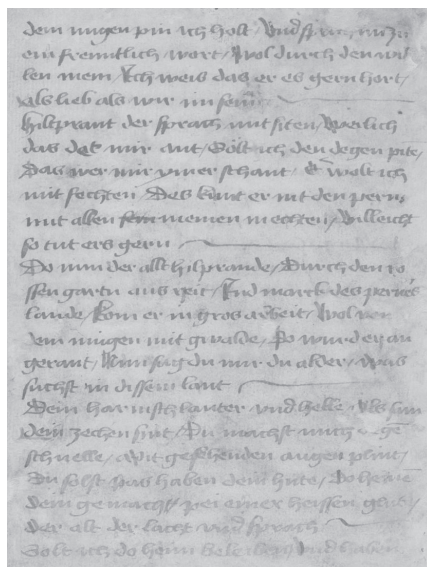 dem iungen pin ich holt / Vnd sprich im zu
ein freuntlich wort / Wol durch den wil
len mein / Ich weis das er es gern hort /
als lieb als wir im sein
hilprant der sprach mit siten / Weilich
das det mir ant / Solt ich den degen piten /
Das wer mir ymer schant / E wolt ich
mit fechten / Des kunt er nit den pern
mit allen sein meinen mechten / Villeicht
so tut ers gern
Do nun der allt hilprande / Durch den ro
ssen gartn aus reit / Vnd marck des perners
lande / Kom er in gros arbeit / Wol von
dem iungen mit gewalde / So ward er an
gerant / Nun sag du mir du alder / Was
suchst in dissem lant
Dein harnisch lauter vnd helle / Als sun
dein zechen sint / Du machst mich
schnelle / Mit gesehenden augen plint /
Du solst das haben dein hute / Do heime
dein gemacht / pei einer heissen glut /
der alt der lacht vnd sprach
Solt ich do heim beleiben / vnd haben